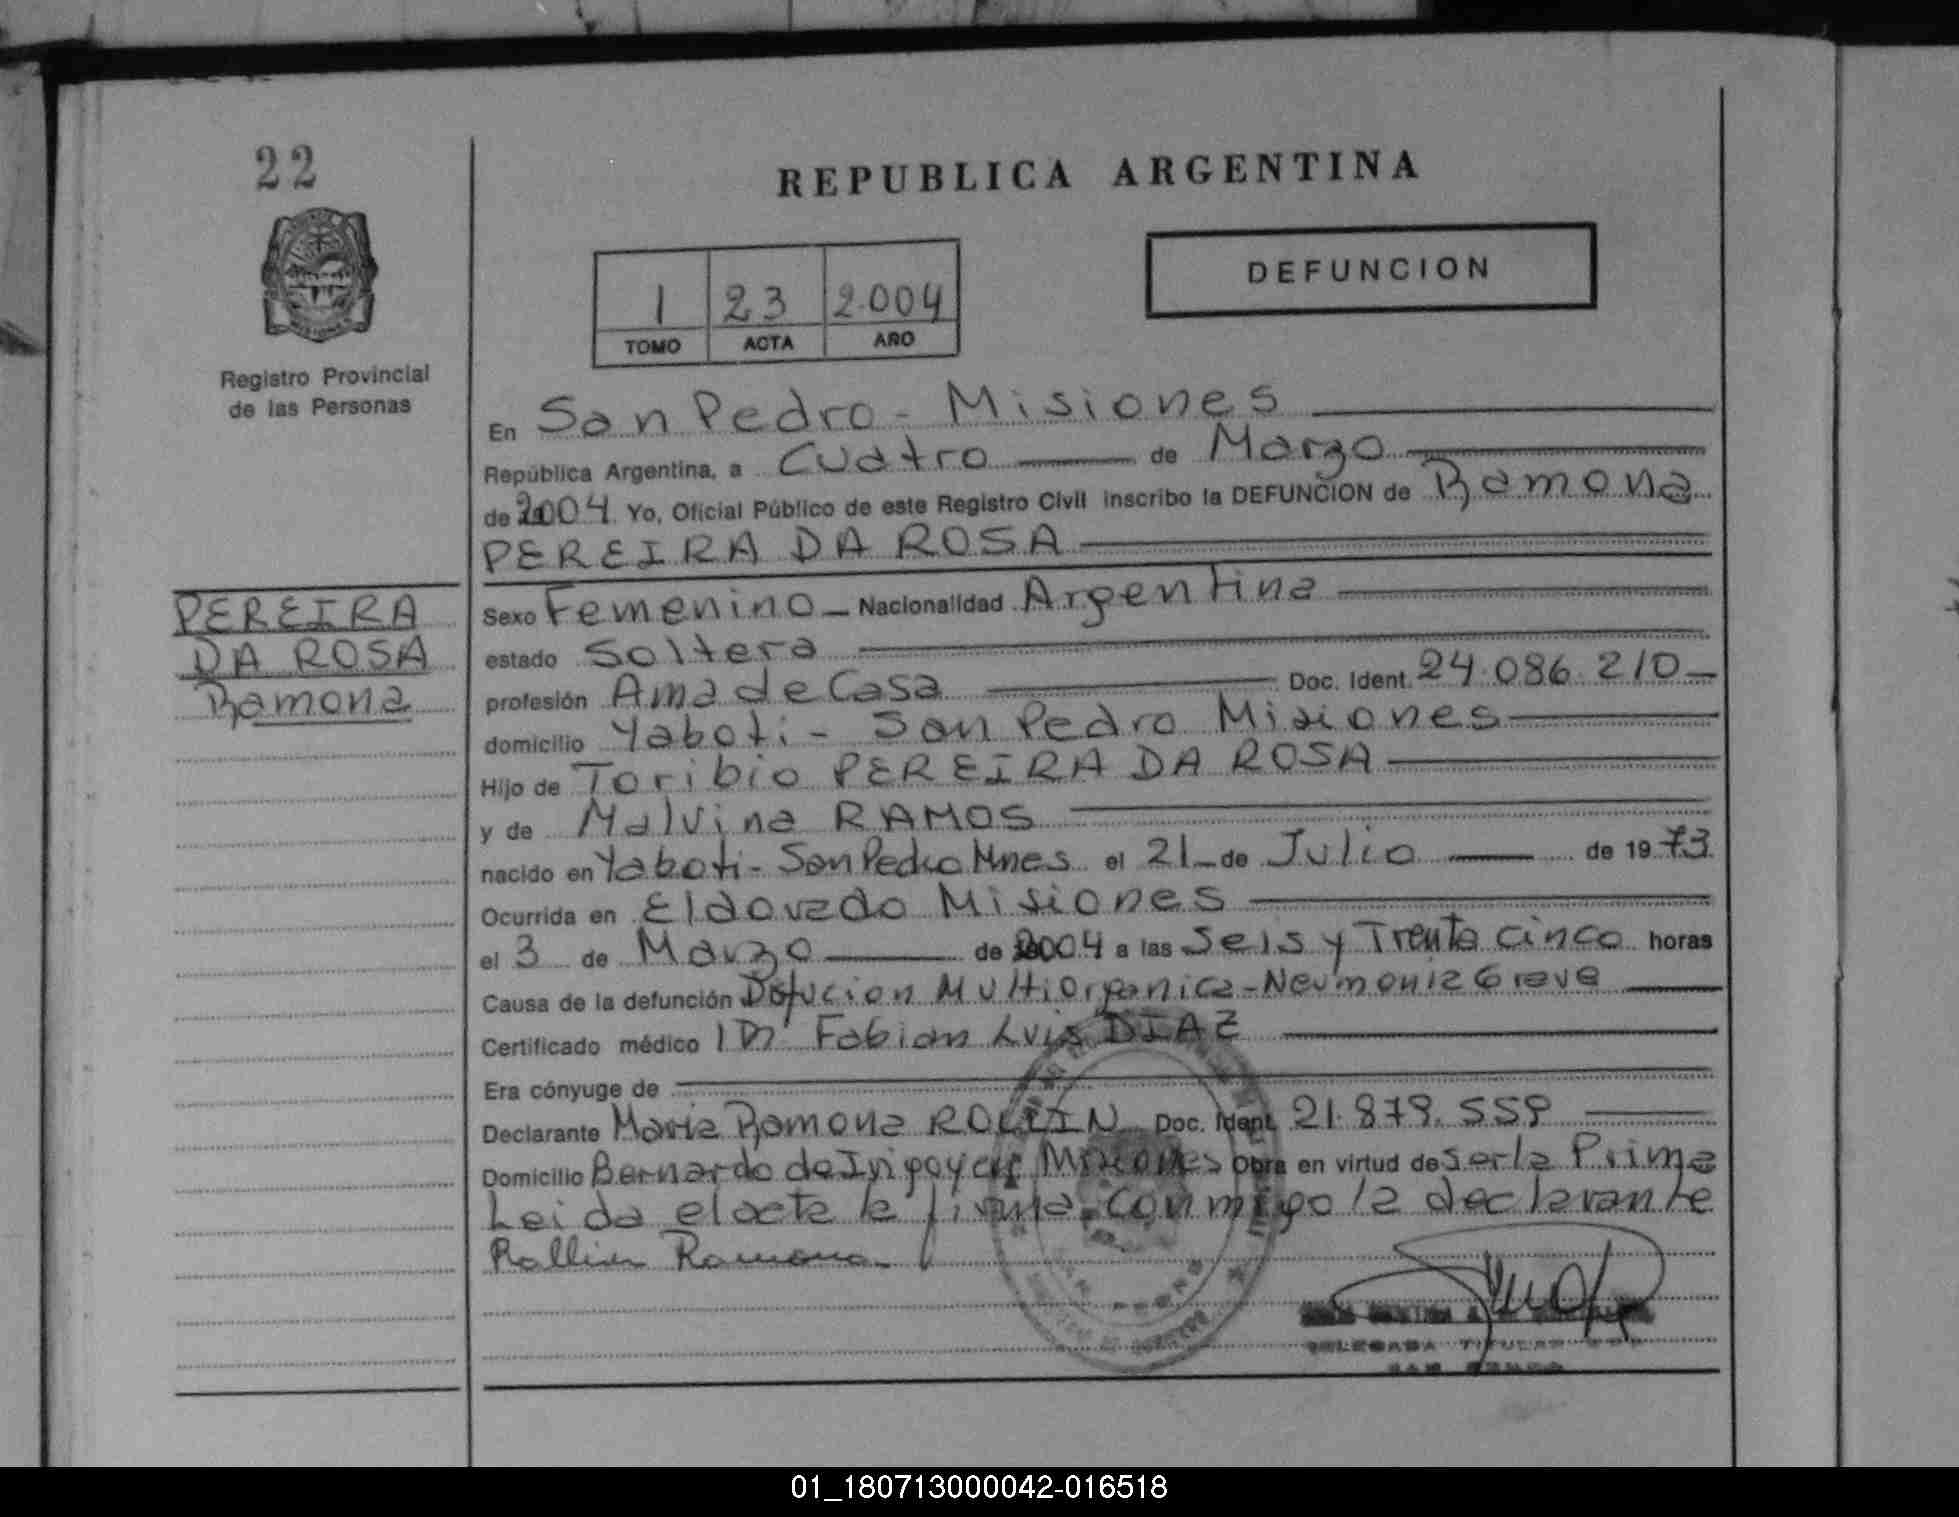 22
REPUBLICA ARGENTINA
DEFUNCION
1 23 2.004
TOMO ACTA AÑO
Registro Provincial
de las Personas
En San Pedro - Misiones
República Argentina, a Cuatro de Marzo
de 2004 Yo, Oficial Público de este Registro Civil inscribo la DEFUNCION de Ramona
PEREIRA DA ROSA
PEREIRA
DA ROSA
Ramona
Sexo Femenino - Nacionalidad Argentina
estado Soltera
profesión Ama de Casa Doc. Ident. 24.086.210
domicilio Yaboti - San Pedro Misiones
Hijo de Toribio PEREIRA DA ROSA
y de Malvina RAMOS
nacido en Yaboti - San Pedro Mnes el 21 de Julio de 1973
Ocurrida en Eldorado Misiones
el 3 de Marzo de 2004 a las Seis y Treinta cinco horas
Causa de la defunción Multiorganica - Neumonia Grave
Certificado médico Dr Fabian Luis DIAZ
Era cónyuge de
Declarante Maria Ramona Doc. Ident. 21.879.559
Domicilio Bernardo de Irigoyen Misiones Obra en virtud de ser la Prima
Leida el acta la firma conmigo la declarante
Ramona
DELEGADA TITULAR
SAN PEDRO
01_180713000042-016518